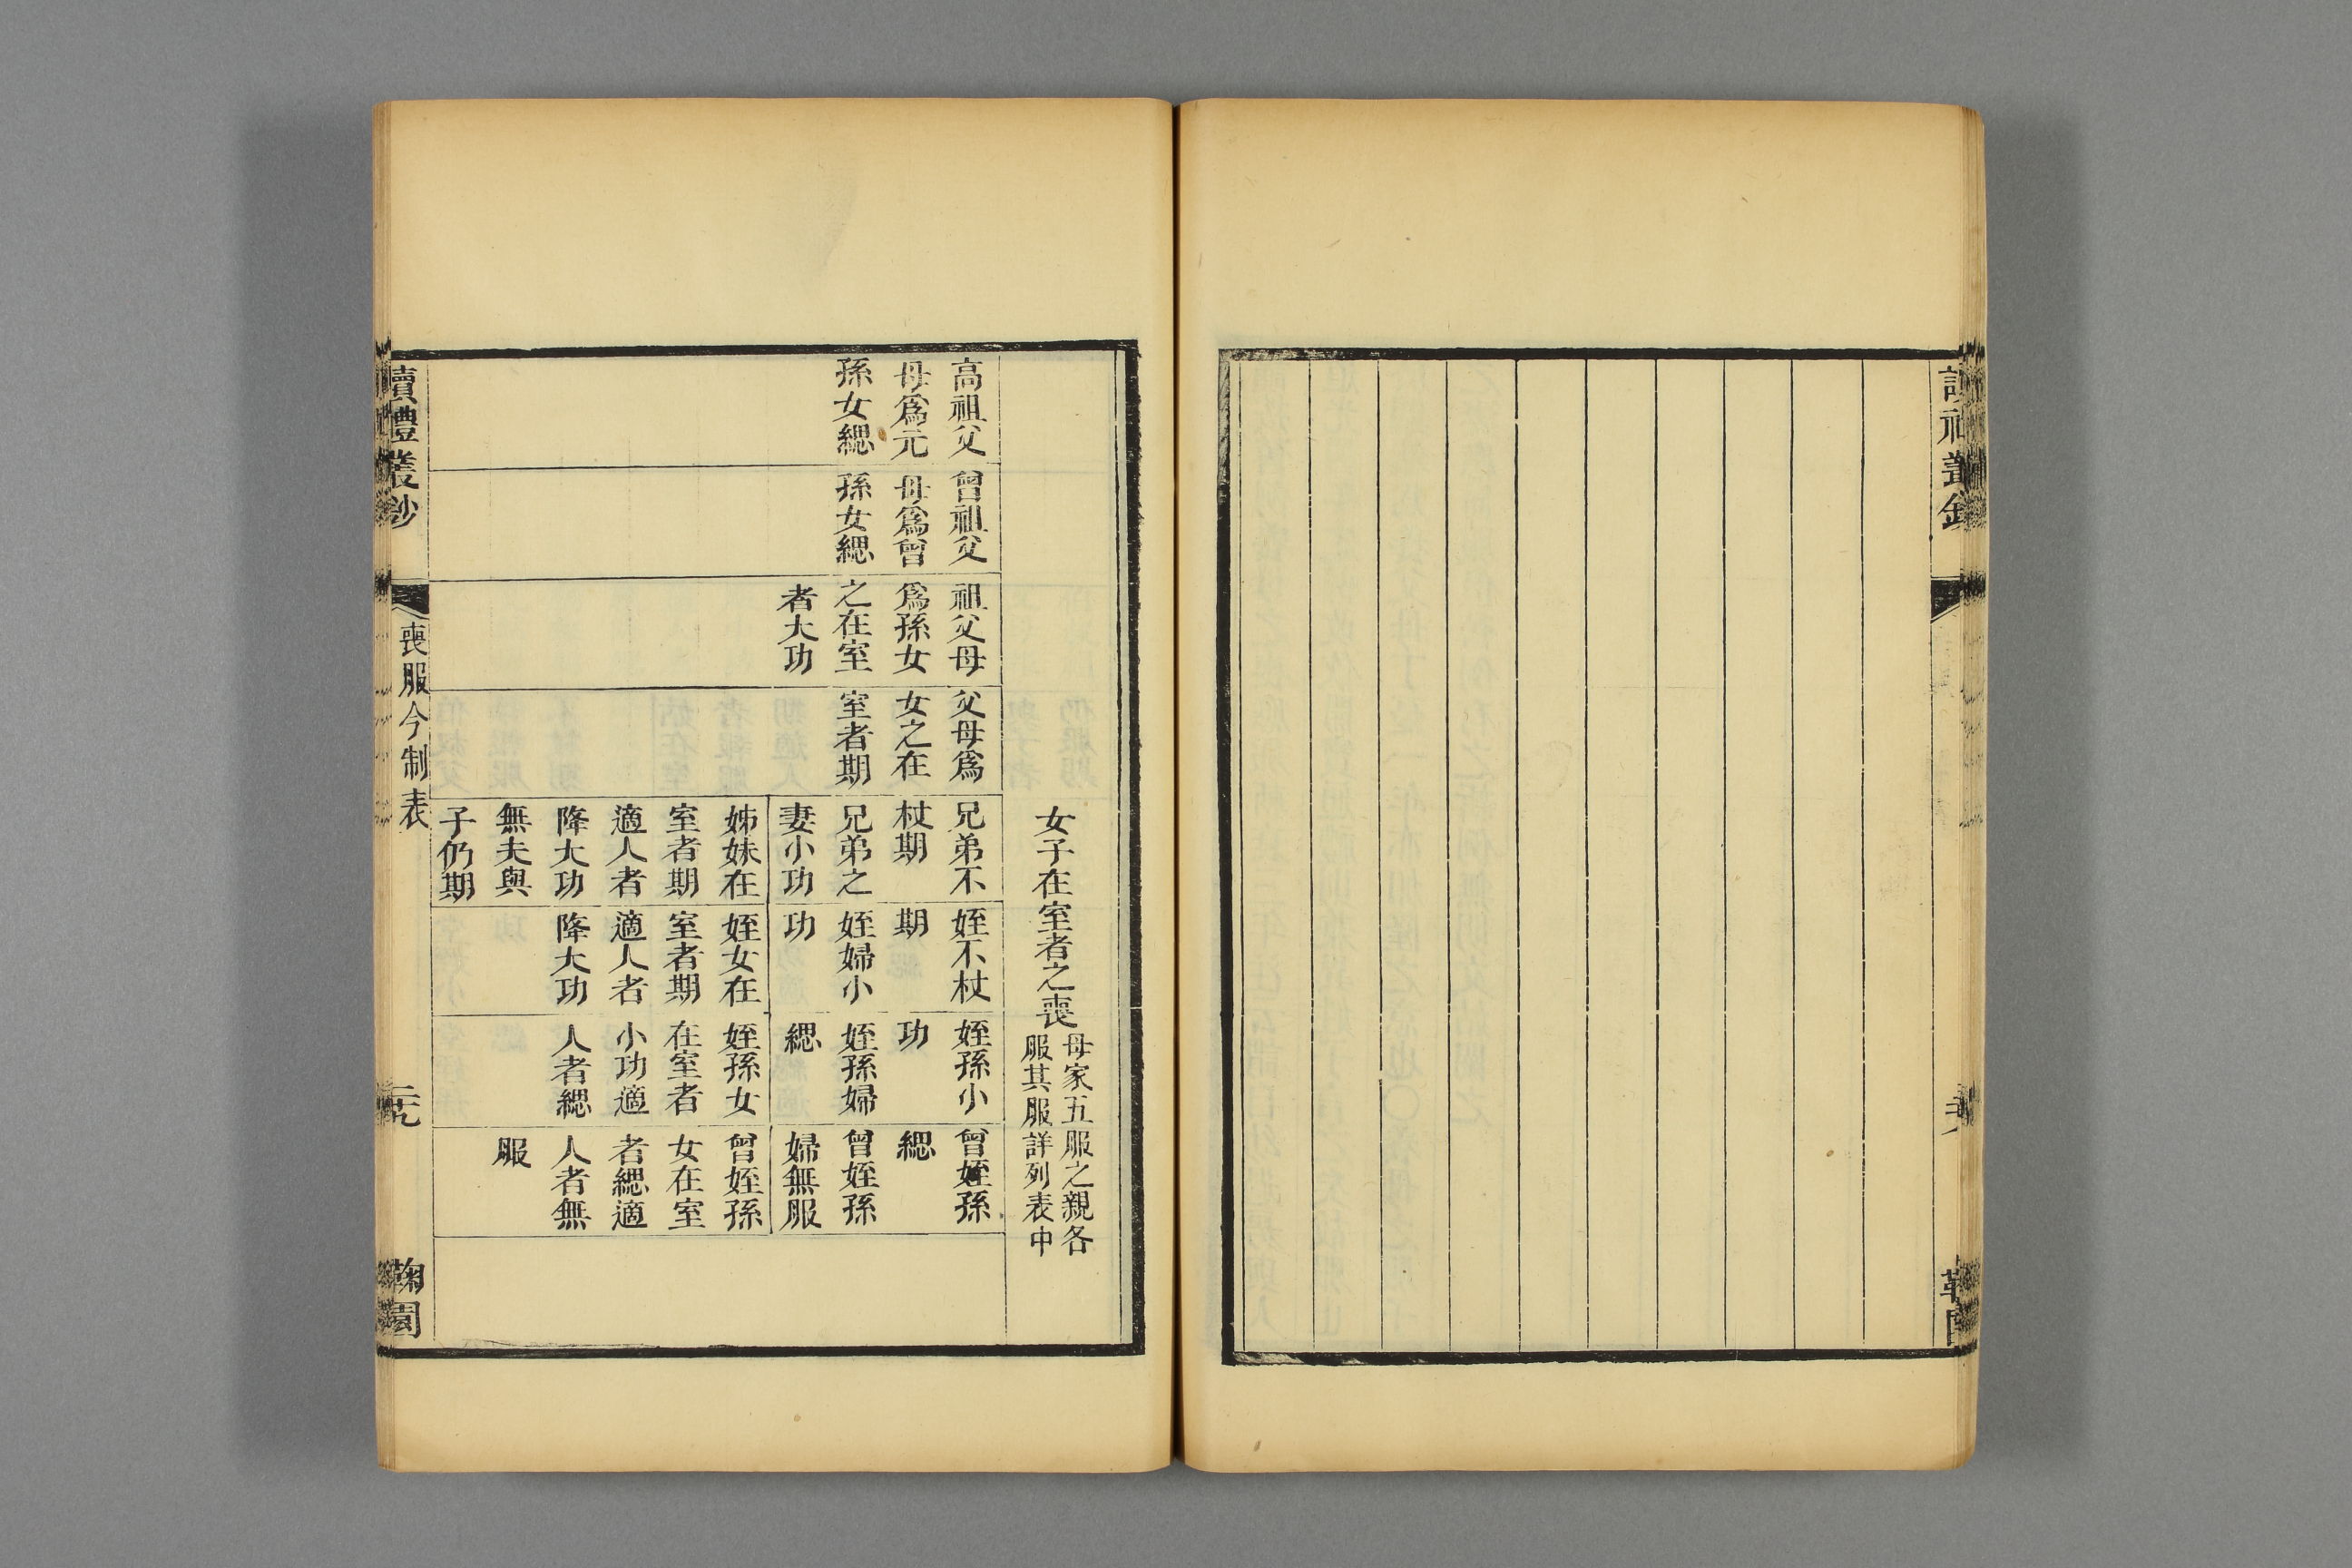 女子在室者之喪
母家五服之親各
服其服詳列表中
高祖父
母爲元
孫女緦
曾祖父
母爲曾
孫女緦
祖父母
爲孫女
之在室
者大功
父母爲
女之在
室者期
兄弟不
杖期
兄弟之
妻小功
姊妹在
室者期
適人者
降大功
無夫與
子仍期
姪不杖
期
姪婦小
功
姪女在
室者期
適人者
降大功
姪孫小
功
姪孫婦
緦
姪孫女
在室者
小功適
人者緦
曾姪孫
緦
曾姪孫
婦無服
曾姪孫
女在室
者緦適
人者無
服
讀禮叢鈔
喪服今制表
鞠園